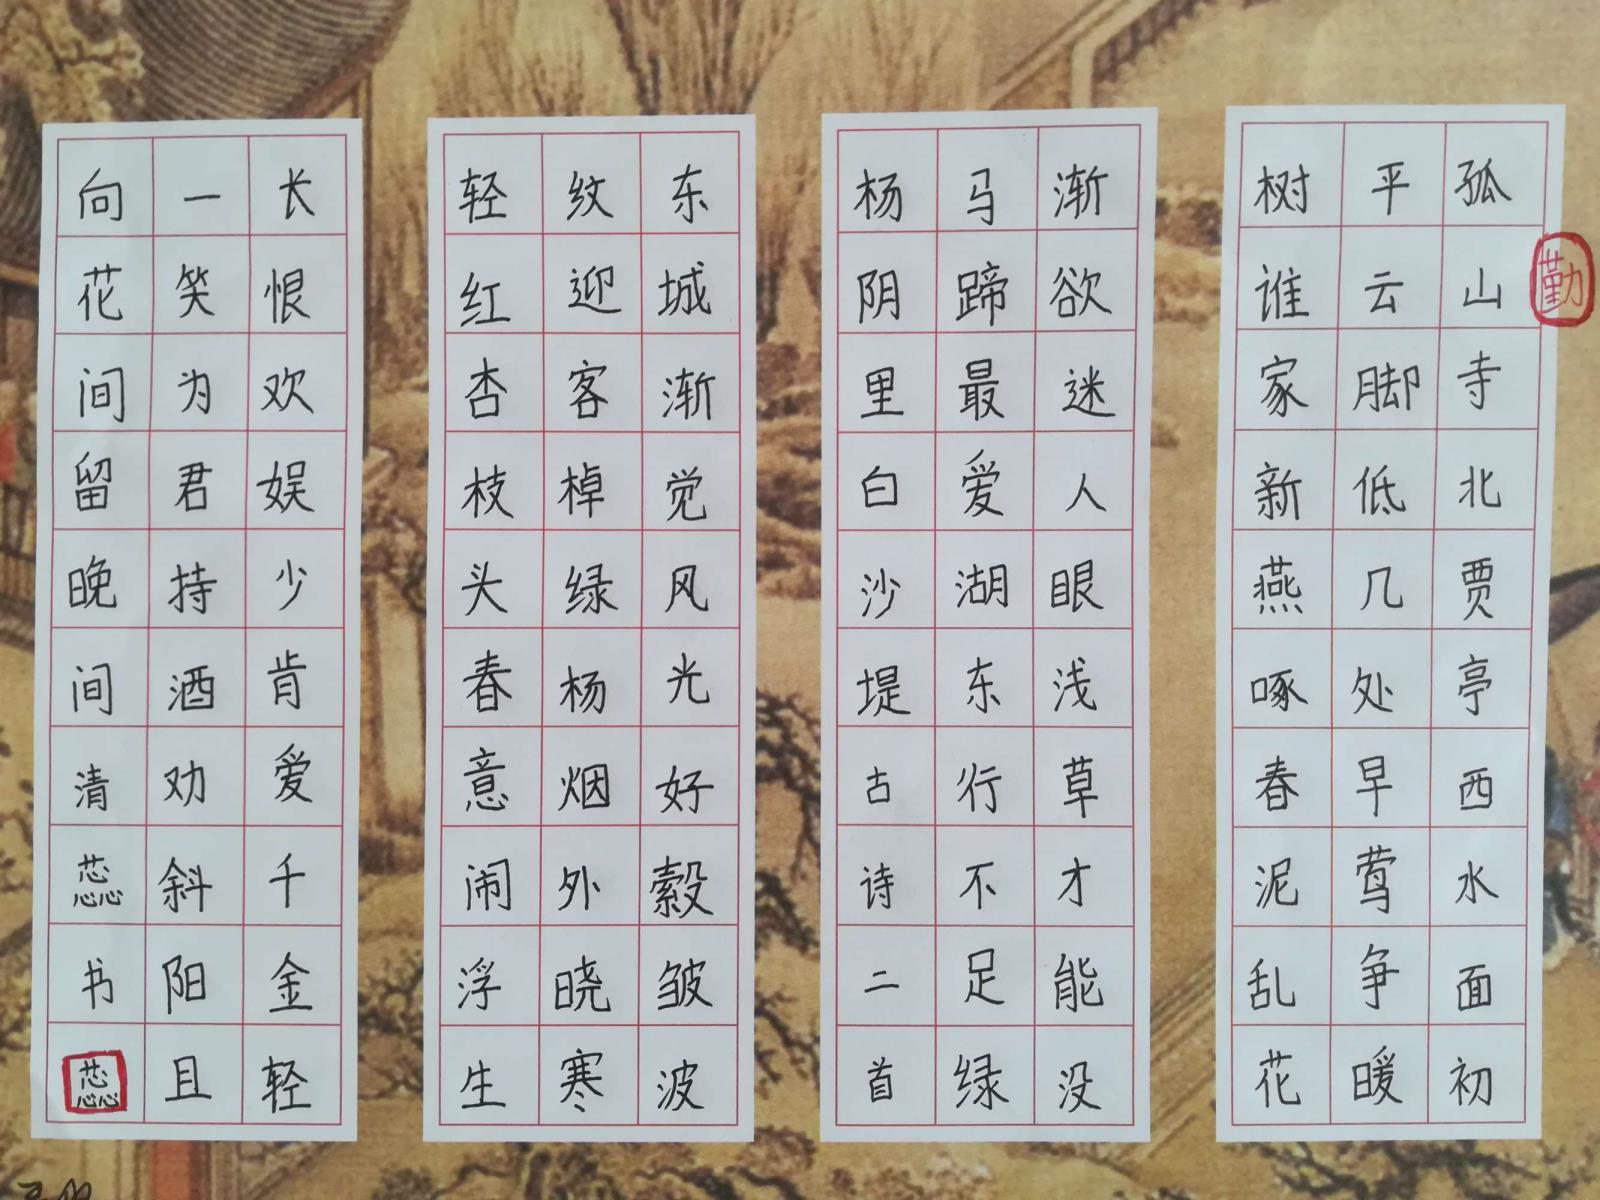 孤山寺北贾亭西水面初
平云脚低几处早莺争暖
树谁家新燕啄春泥乱花
渐欲迷人眼浅草才能没
马蹄最爱湖东行不足绿
杨阴里白沙堤古诗二首
东城渐觉风光好縠皱波
纹迎客棹绿杨烟外晓寒
轻红杏枝头春意闹浮生
长恨欢娱少肯爱千金轻
一笑为君持酒劝斜阳且
向花间留晚间清蕊书蕊
勤